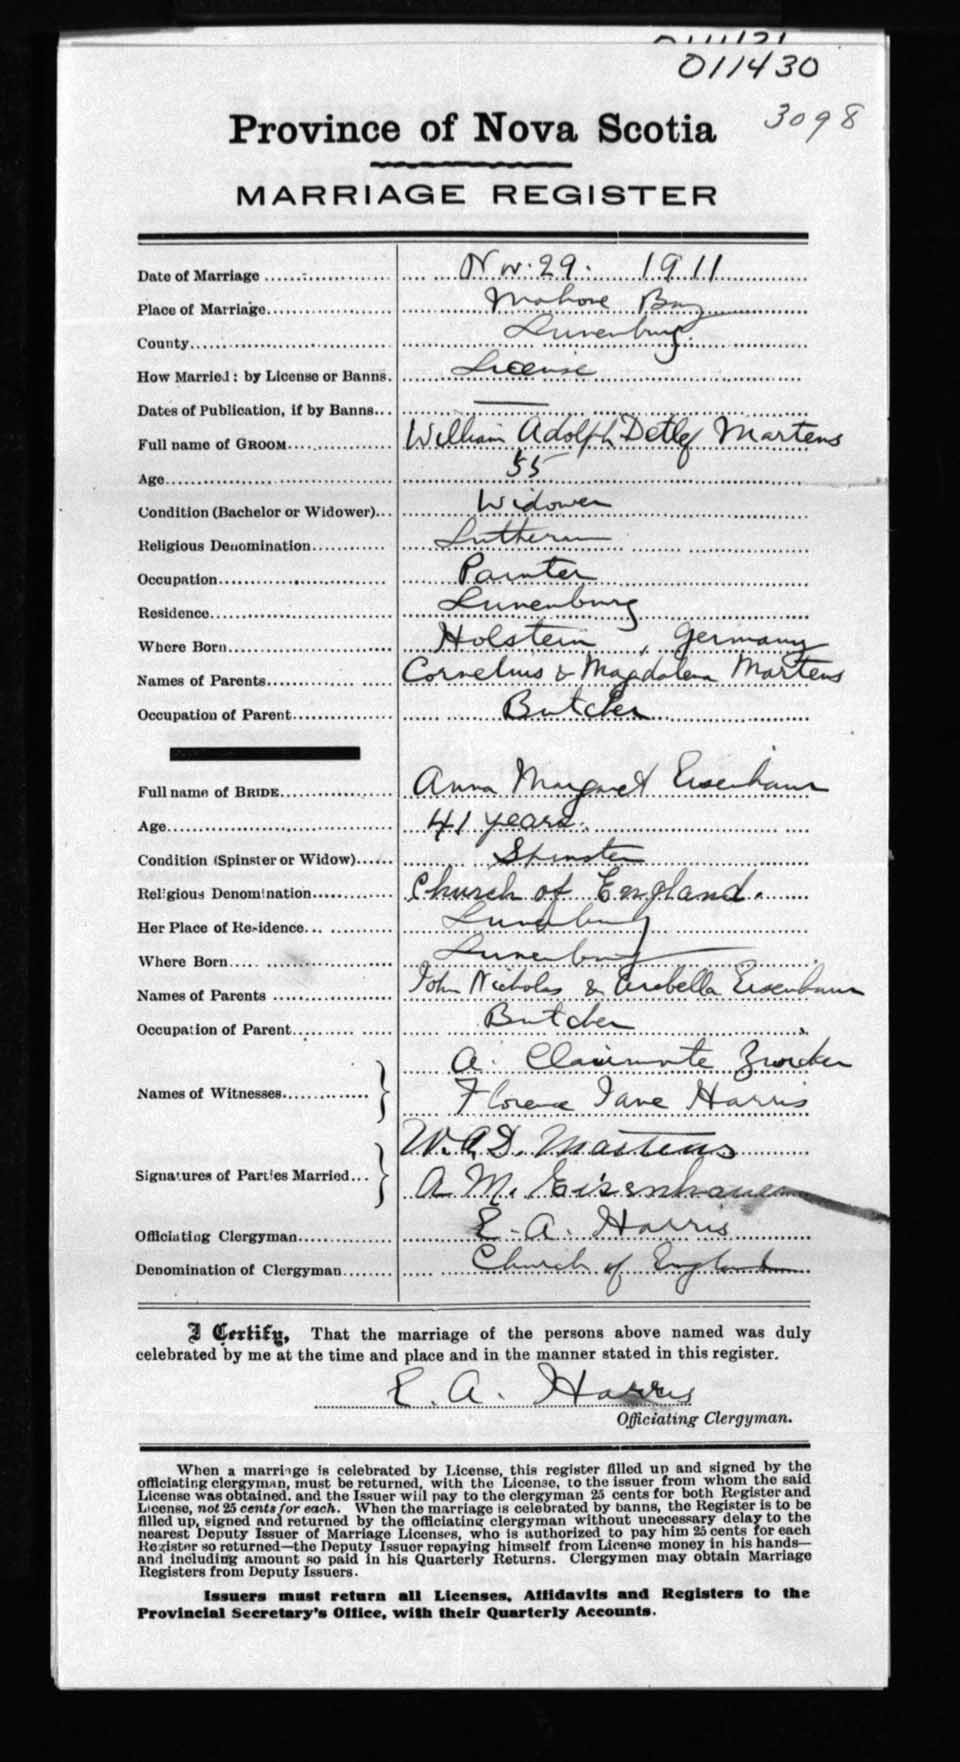 011430
3098
Province of Nova Scotia
MARRIAGE REGISTER
Date of Marriage Nov. 29. 1911
Place of Marriage Mahone Bay
County Lunenburg.
How Married: by License or Banns. License
Dates of Publication, if by Banns... —
Full name of GROOM William Adolph Detlef Martens
Age 55
Condition (Bachelor or Widower)... Widower
Religious Denomination Lutheran
Occupation Painter
Residence Lunenburg
Where Born Holstein, Germany
Names of Parents Cornelius & Magdalena Martens
Occupation of Parent Butcher
Full name of BRIDE Anna Margaret Eisenhaur
Age 41 years.
Condition (Spinster or Widow) Spinster
Religious Denomination Church of England.
Her Place of Residence Lunenburg
Where Born Lunenburg
Names of Parents John Nicholas & Arabella Eisenhaur
Occupation of Parent Butcher
A. Clairmonte Zwicker
Names of Witnesses
Florence Jane Harris
W. A. D. Martens
Signatures of Parties Married...
A M. Eisenhauer
Officiating Clergyman E. A. Harris
Denomination of Clergyman Church of England
I Certify, That the marriage of the persons above named was duly
celebrated by me at the time and place and in the manner stated in this register.
E. A. Harris
Officiating Clergyman.
When a marriage is celebrated by License, this register filled up and signed by the
officiating clergyman, must be returned, with the License, to the issuer from whom the said
License was obtained, and the Issuer will pay to the clergyman 25 cents for both Register and
License, not 25 cents for each. When the marriage is celebrated by banns, the Register is to be
filled up, signed and returned by the officiating clergyman without unnecessary delay to the
nearest Deputy Issuer of Marriage Licenses, who is authorized to pay him 25 cents for each
Register so returned—the Deputy Issuer repaying himself from License money in his hands—
and including amount so paid in his Quarterly Returns. Clergymen may obtain Marriage
Registers from Deputy Issuers.
Issuers must return all Licenses, Affidavits and Registers to the
Provincial Secretary's Office, with their Quarterly Accounts.